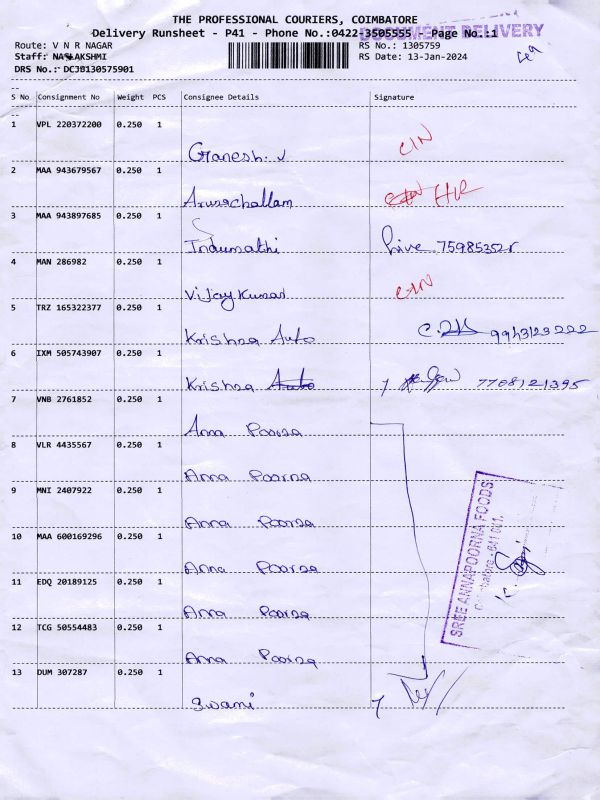 THE PROFESSIONAL COURIERS, COIMBATORE
Delivery Runsheet - P41 - Phone No.:0422-3505555 - Page No.:1
DOCUMENT DELIVERY
Route: V N R NAGAR
RS No.: 1305759
Staff:
RS Date: 13-Jan-2024
DRS No.: DCJB130575901
S No Consignment No Weight PCS Consignee Details Signature
1 VPL 220372200 0.250 1
Ganesh. J CIN
2 MAA 943679567 0.250 1
Arunachallam
3 MAA 943897685 0.250 1
Indumathi
4 MAN 286982 0.250 1
Vijay Kumar CIN
5 TRZ 165322377 0.250 1
Krishna Auto
6 IXM 505743907 0.250 1
Krishna Auto 7708121395
7 VNB 2761852 0.250 1
Anna Poorna
8 VLR 4435567 0.250 1
Anna Poorna
9 MNI 2407922 0.250 1
Anna Poorna
10 MAA 600169296 0.250 1
Anna Poorna
11 EDQ 20189125 0.250 1
Anna Poorna
12 TCG 50554483 0.250 1
Anna Poorna
13 DUM 307287 0.250 1
Swami
SREE ANNAPOORNA FOODS
Coimbatore - 641 041.